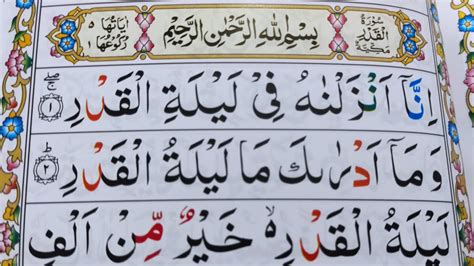 سُوْرَةُ الْقَدْرِ مَكِّيَّةٌ
بِسْمِ اللّٰهِ الرَّحْمٰنِ الرَّحِيْمِ
اٰيَاتُهَا ٥ رُكُوْعُهَا ١
اِنَّاۤ اَنْزَلْنٰهُ فِىْ لَيْلَةِ الْقَدْرِ ۝١ صلے ج
وَمَاۤ اَدْرٰىكَ مَا لَيْلَةُ الْقَدْرِ ۝٢ ط
لَيْلَةُ الْقَدْرِ ۙ خَيْرٌ مِّنْ اَلْفِ